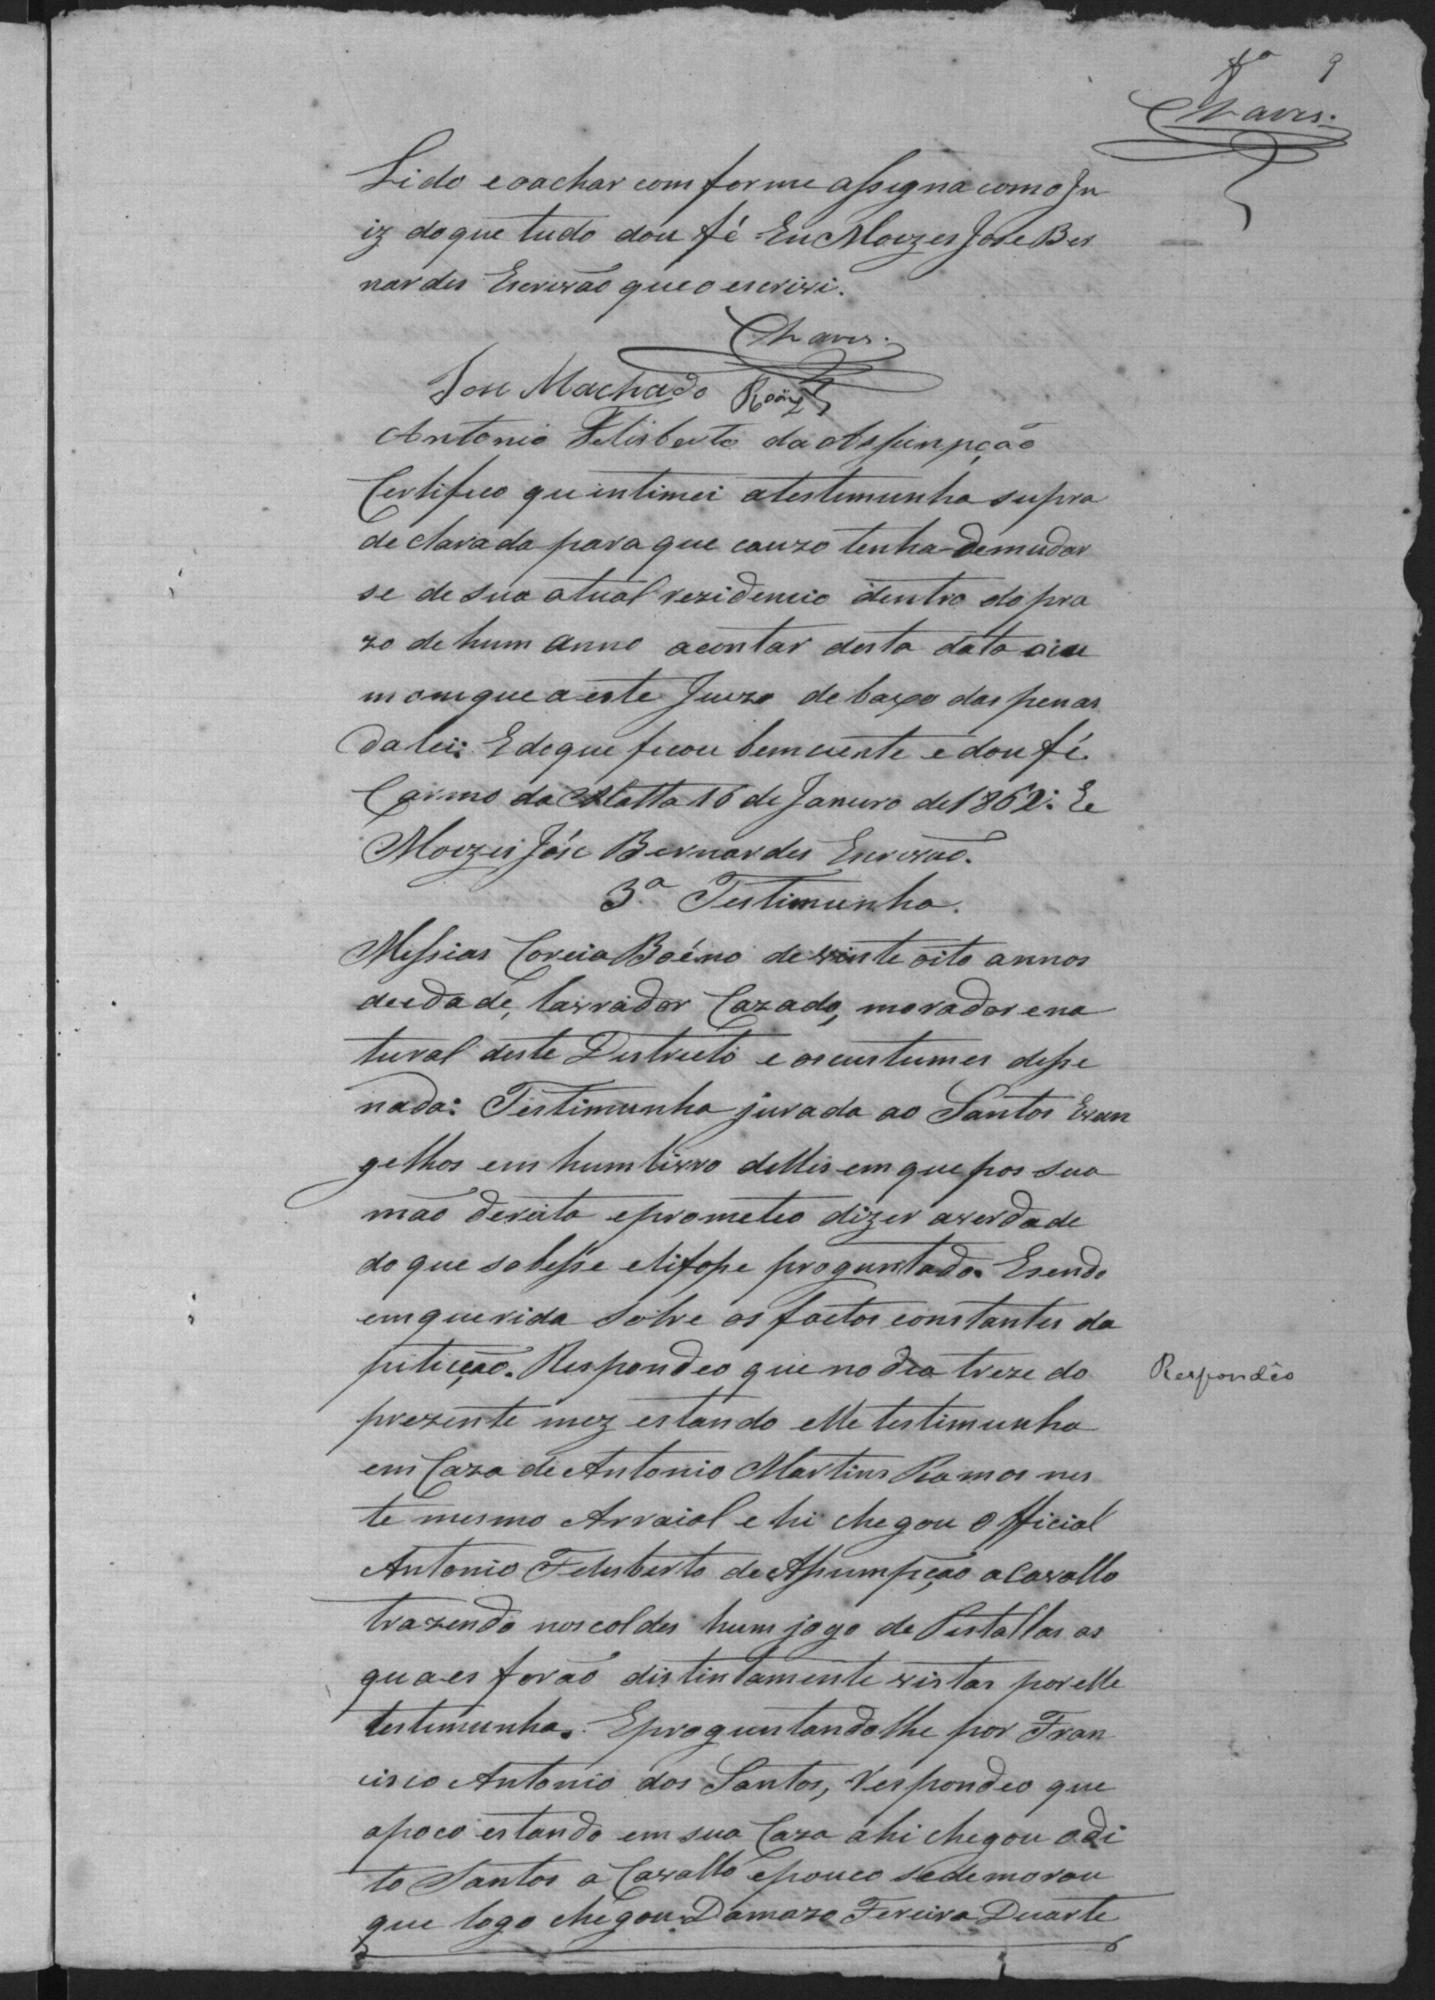 fª 9
Chaves.
Lido e o achar com forme assigna como Ju
iz do que tudo dou fé Eu Moezes Jose Ber
nardes Escrivão que o escrivi.
Chaves.
Jose Machado
Antonio Felisberto da Assumpção
Certifico qu intimei a testemunha supra
declarada para que cauzo tenha de mudar
se de sua atual rezidencia dentro do pra
zo de hum anno a contar desta data o cu
monique a este Juizo debaxo das penas
da lei: E de que ficou bem ciente e dou fé
Carmo da Matta 16 de Janeiro de 1862: Eu
Moezes Jóse Bernardes Escrivão.
3ª Testimunha.
Messias Correia Boéno de vinte oito annos
de idade, lavrador Cazado, morador e na
tural deste Districto e os custumes disse
nada: Testimunha jurada ao Santos Evan
gelhos em hum livro delles em que pos sua
mão dereita e prometeo dizer a verdade
do que sobesse e lifosse proguntado. E sendo
emquerida sobre os factos constantes da
pitição. Respondeo que no dia treze do
Respondêo
prezente mez estando elle testimunha
em Caza de Antonio Martins Ramos nes
te mesmo Arraial e hi chegou Official
Antonio Felisberto de Assumpção a Cavallo
trazendo nos coldes hum jogo de Pistollas as
quaes forão distintamente vistas por elle
testimunha. E proguntandolhe por Fran
cisco Antonio dos Santos, Respondeo que
a poco estando em sua Caza ahi chegou o di
to Santos a Cavallo e pouco sedemorou
que logo chegou Damazo Fereira Duarte